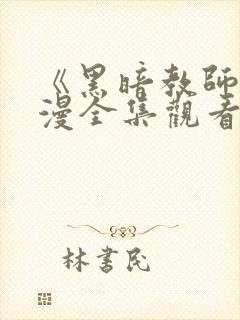 《黑暗教師
漫全集觀看
林書民